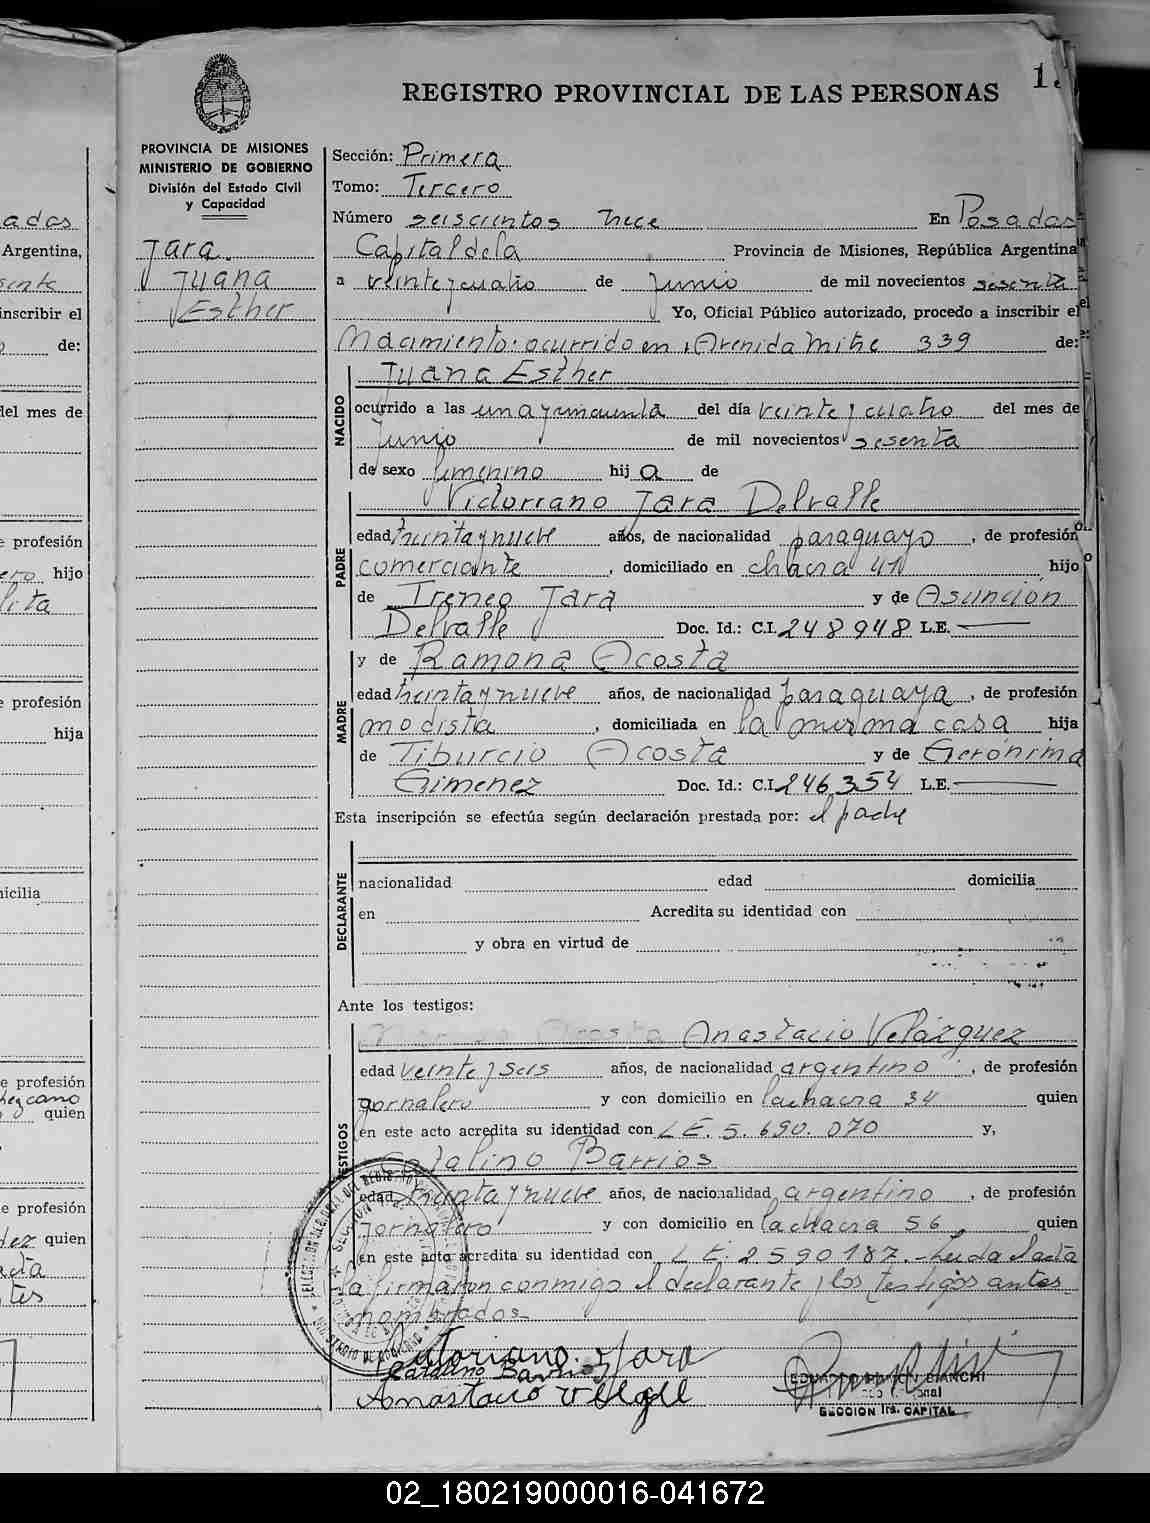 REGISTRO PROVINCIAL DE LAS PERSONAS
PROVINCIA DE MISIONES
MINISTERIO DE GOBIERNO
División del Estado Civil
y Capacidad
Jara
Juana
Esther
Sección: Primera
Tomo: Tercero
Número seiscientos trece En Posadas
Capital de la Provincia de Misiones, República Argentina
a veinte y cuatro de Junio de mil novecientos sesenta
Yo, Oficial Público autorizado, procedo a inscribir el
Nacimiento: ocurrido en Avenida Mitre 339 de:
NACIDO
Juana Esther
ocurrido a las una y cincuenta del día veinte y cuatro del mes de
Junio de mil novecientos sesenta
de sexo femenino hij a de
PADRE
Victoriano Jara Delvalle
edad treinta y nueve años, de nacionalidad paraguayo, de profesión
comerciante, domiciliado en chacra 41 hijo
de Ireneo Jara y de Asunción
Delvalle Doc. Id.: C.I. 248948 L.E.
MADRE
y de Ramona Acosta
edad treinta y nueve años, de nacionalidad paraguaya, de profesión
modista, domiciliada en la misma casa hija
de Tiburcio Acosta y de Gerónima
Gimenez Doc. Id.: C.I. 246354 L.E.
Esta inscripción se efectúa según declaración prestada por: el padre
DECLARANTE
nacionalidad edad domicilia
en Acredita su identidad con
y obra en virtud de
Ante los testigos:
Acosta Anastacio Velázquez
edad veinte y seis años, de nacionalidad argentino, de profesión
jornalero y con domicilio en la chacra 34 quien
en este acto acredita su identidad con L.E. 5.690.070 y,
Catalino Barrios
edad treinta y nueve años, de nacionalidad argentino, de profesión
jornalero y con domicilio en la chacra 56 quien
en este acto acredita su identidad con L.E. 2590187.- Leida el acta
la firmaron conmigo el declarante y los testigos antes
nombrados.-
Victoriano Jara
Catalino Barrios
Anastacio
EDUARDO RAMON BIANCHI
SECCION 1ra. CAPITAL
02_180219000016-041672